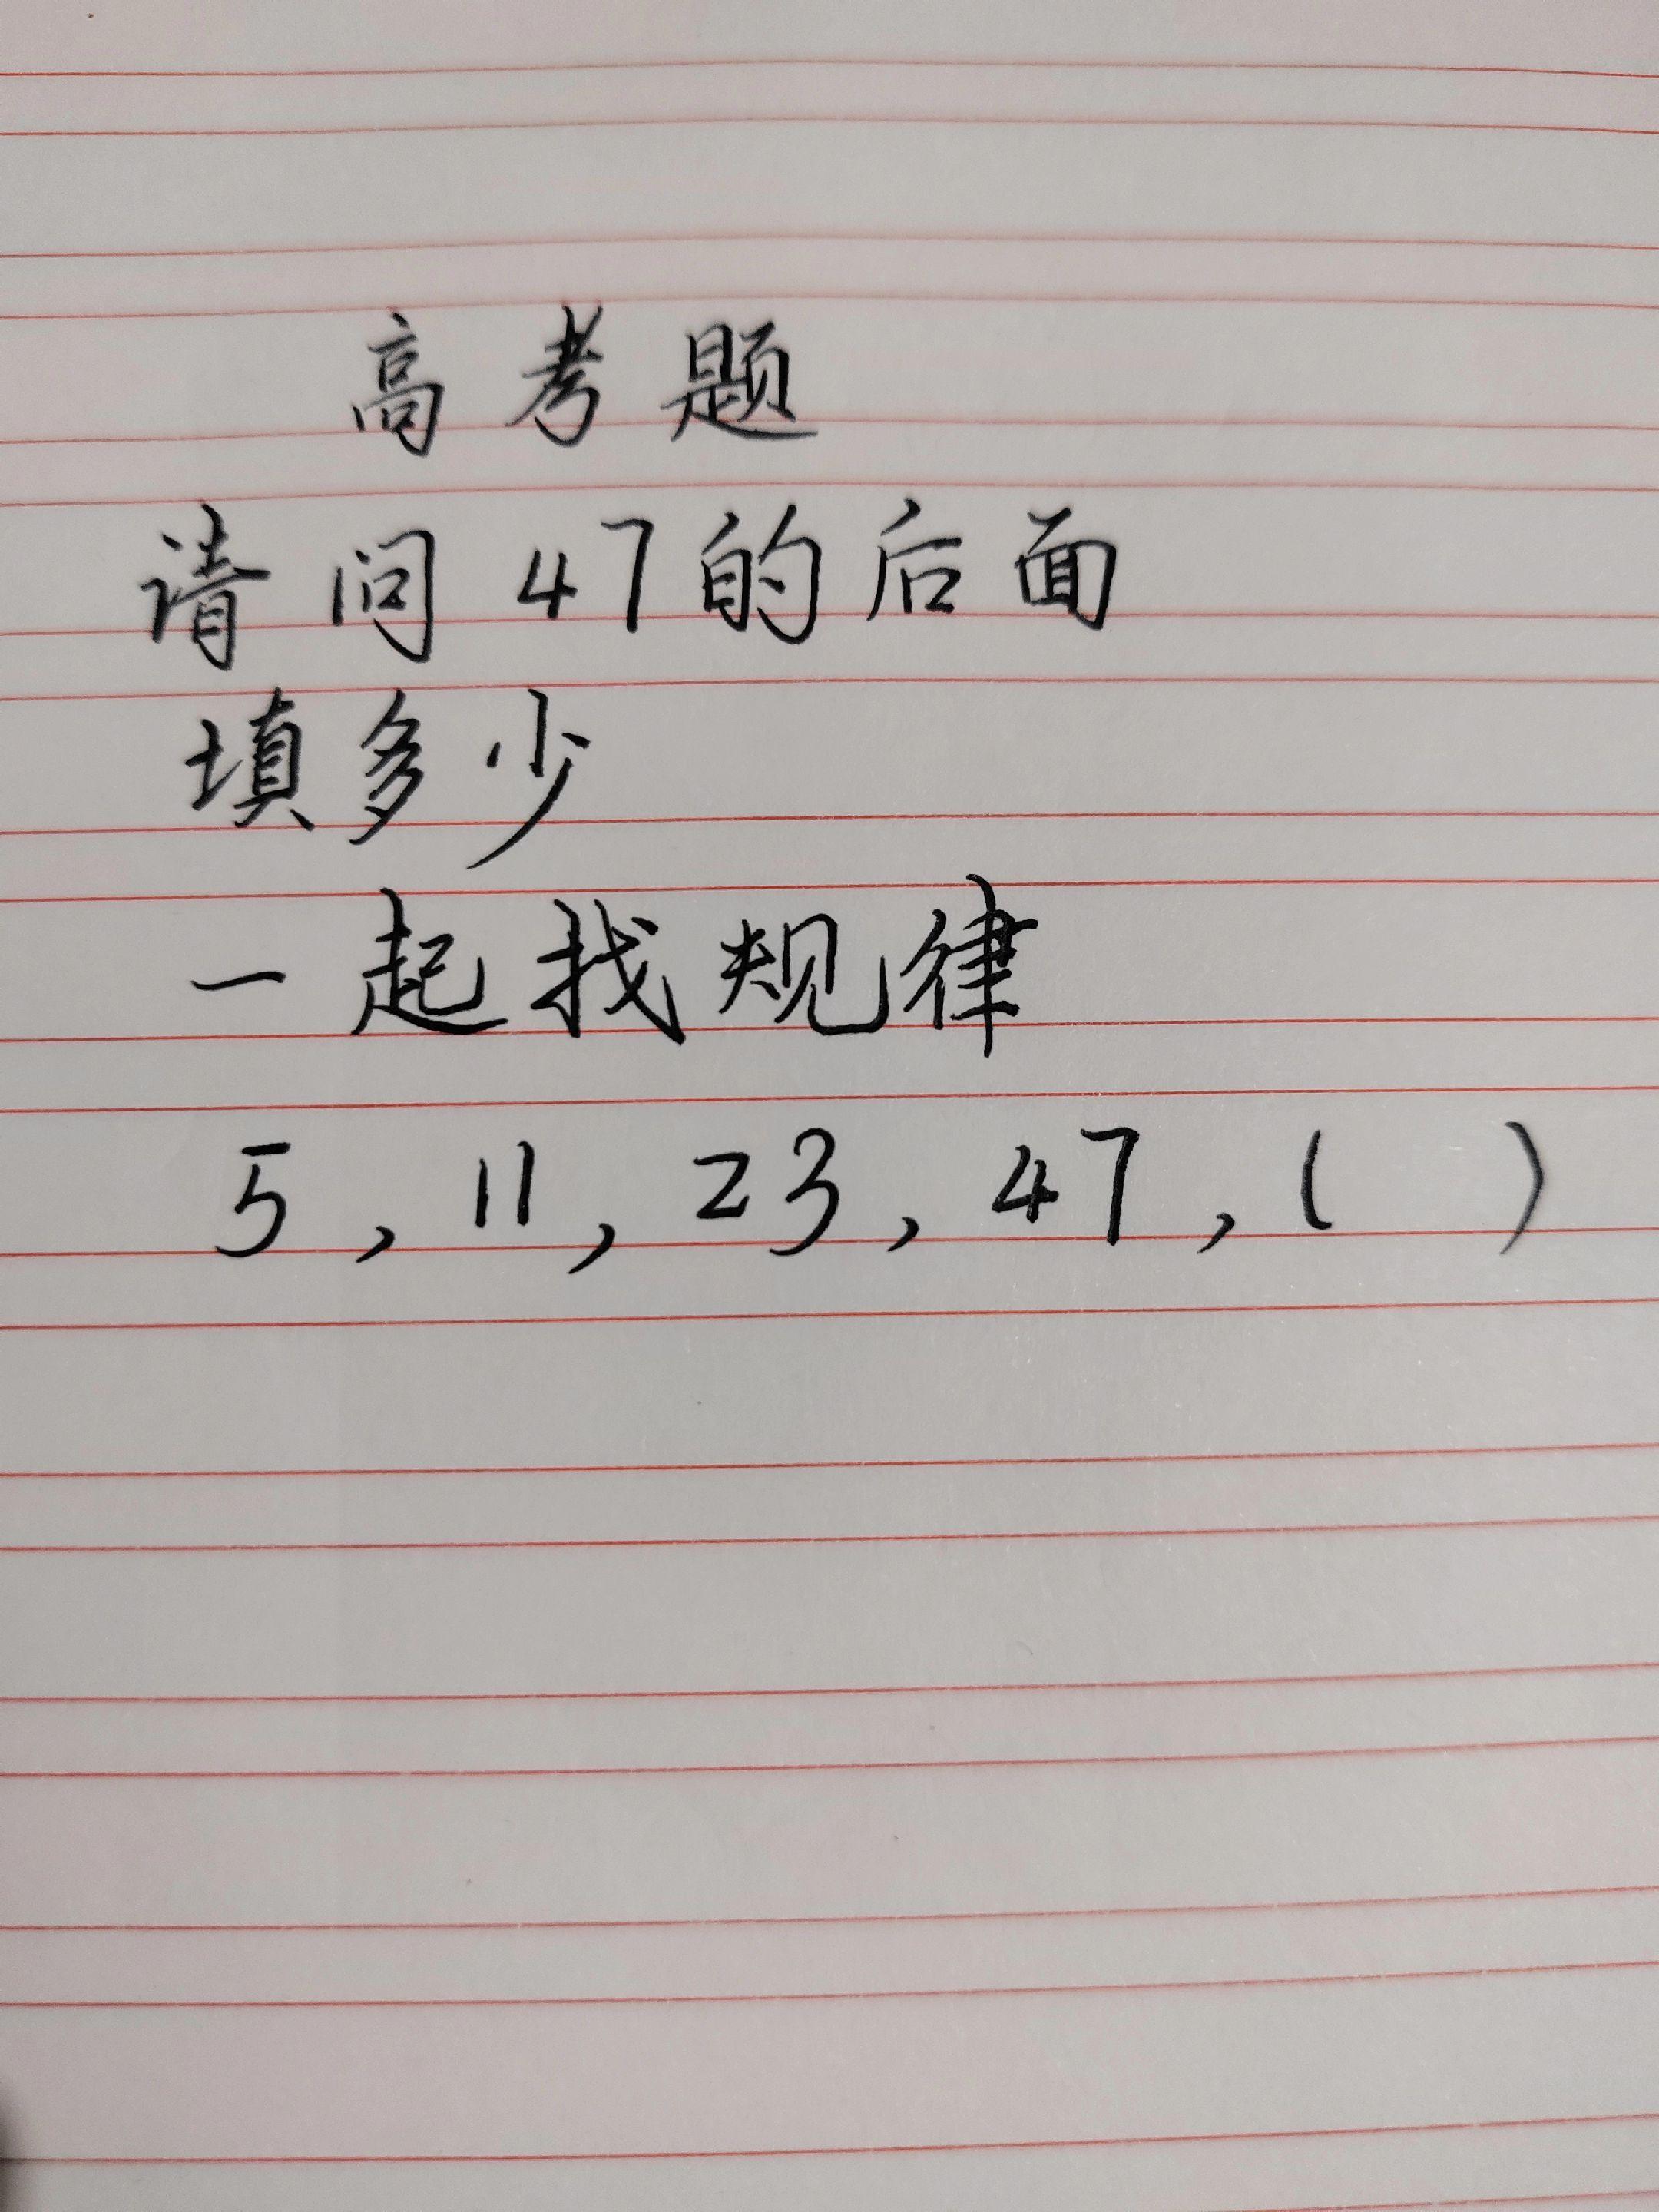 高考题
请问47的后面
填多少
一起找规律
5,11,23,47,( )